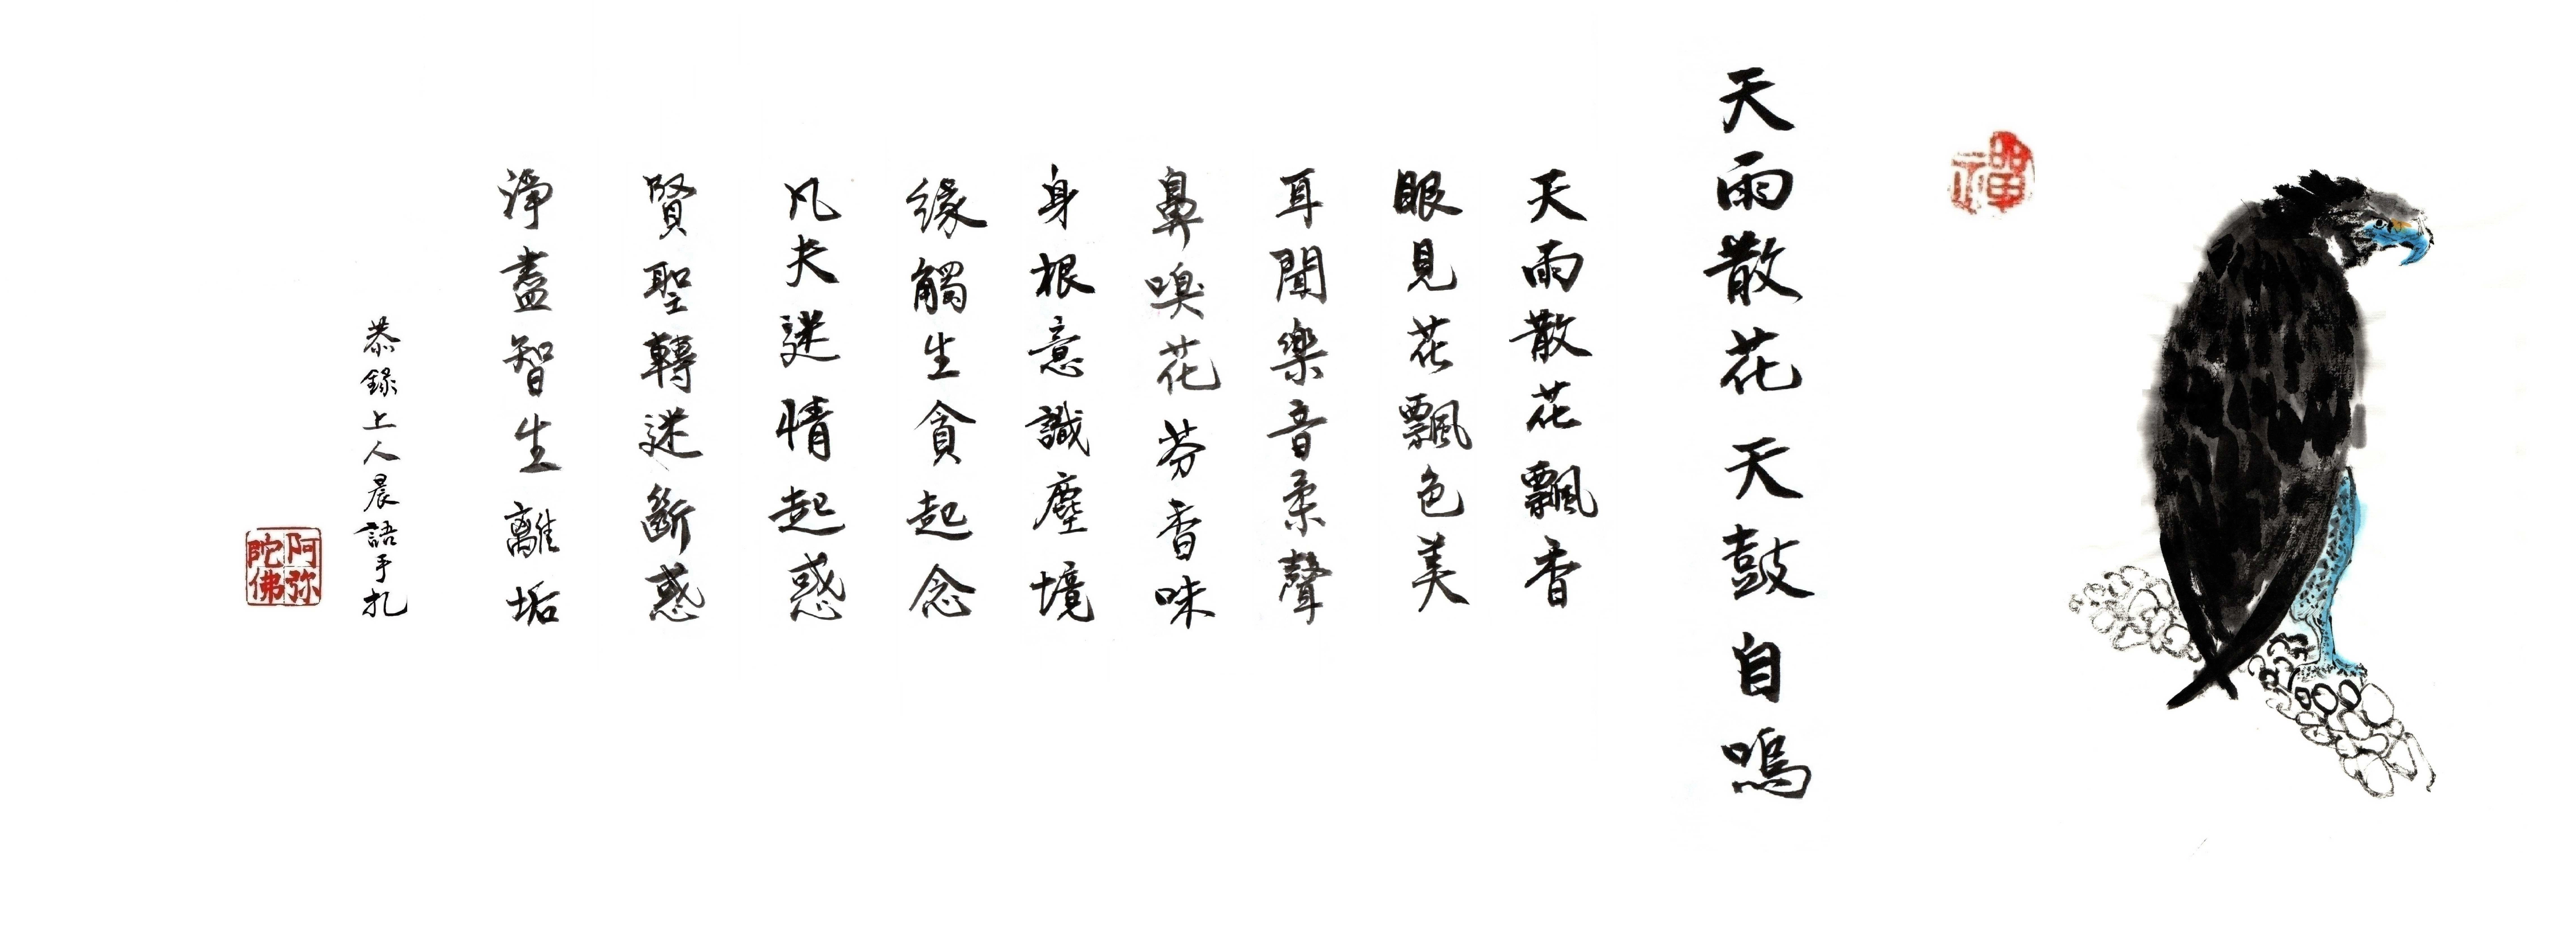 禪
天雨散花 天鼓自鳴
天雨散花飄香
眼見花飄色美
耳聞樂音柔聲
鼻嗅花芬香味
身根意識塵境
緣觸生貪起念
凡夫迷情起惑
賢聖轉迷斷惑
淨盡智生離垢
恭錄上人晨語手扎
阿弥陀佛